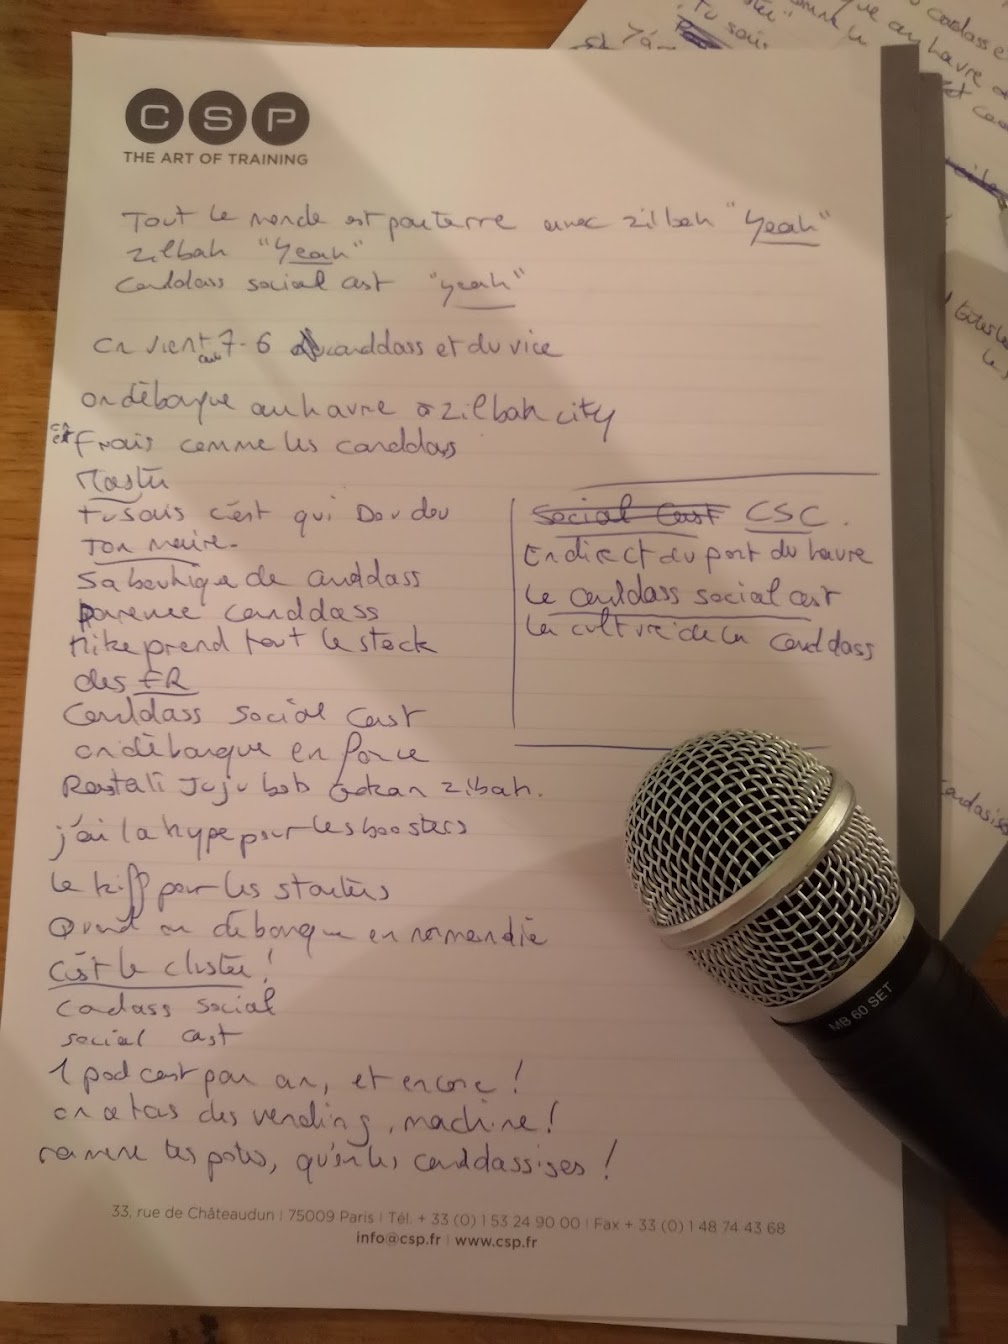 CSP
THE ART OF TRAINING
Tout le monde est par terre avec zilbah "Yeah"
zilbah "Yeah"
Canddass social cast "yeah"
on vient du 7-6 canddass et du vice
on débarque au havre a zilbah city
on est Frais comme les canddass
Master
tu sais c'est qui Doudou
Ton maire.
Sa boutique de canddass
parence canddass
Nike prend tout le stock
des FR
Canddass social Cast
on débarque en force
Rastali Juju bob Gokan zibah.
j'ai la hype pour les boosters
le kiff pour les starters
Quand on débarque en normandie
C'est le cluster !
Cadass social
social cast
1 podcast par an, et encore !
on a tas des vending, machine !
ramène tes potes, qu'on les canddassises !
Social Cast CSC.
En direct du port du havre
Le canddass social cast
la culture de la canddass
MB 60 SET
33, rue de Châteaudun | 75009 Paris | Tél. + 33 (0) 1 53 24 90 00 | Fax + 33 (0) 1 48 74 43 68
info@csp.fr | www.csp.fr